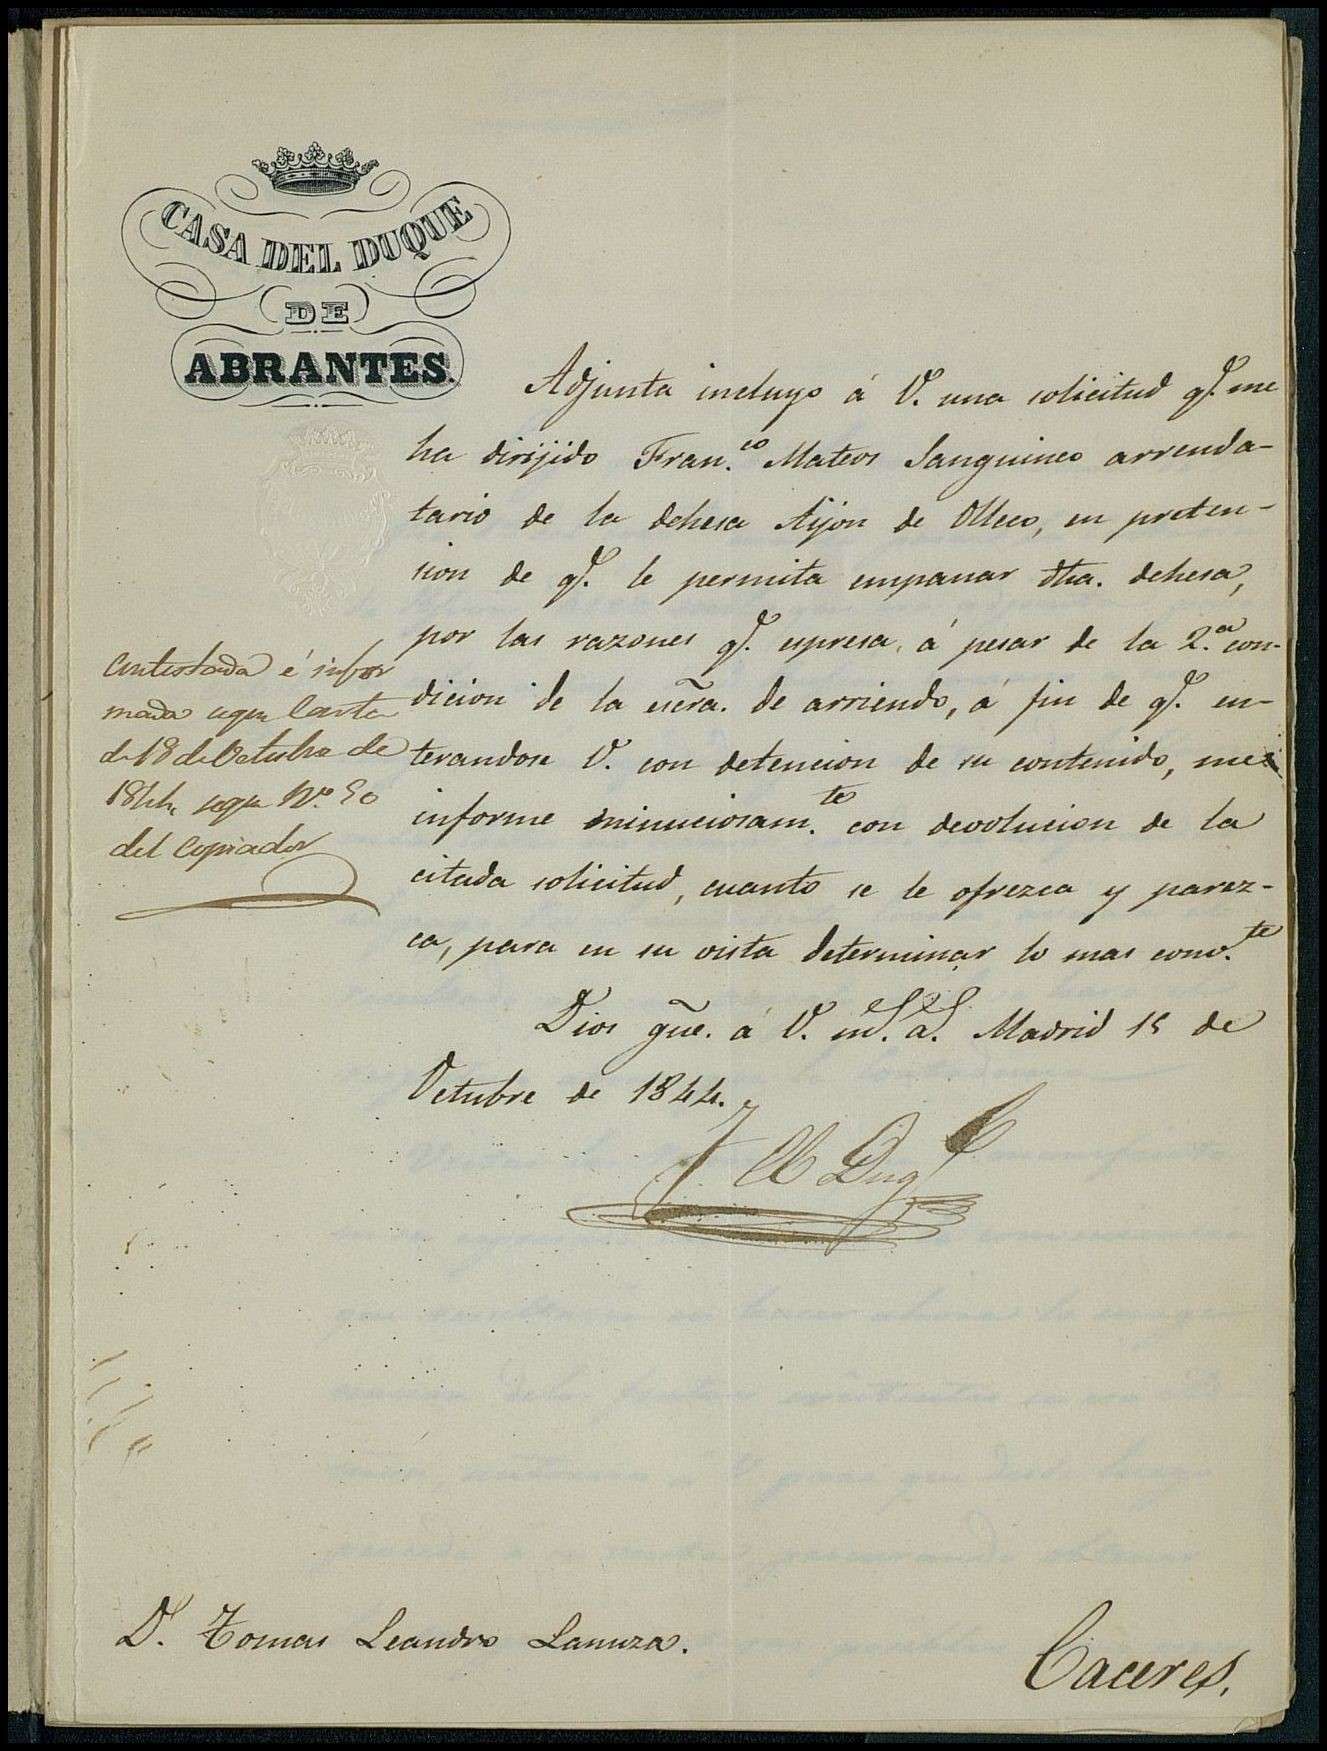 CASA DEL DUQUE
DE
ABRANTES.
Adjunta incluyo á V. una solicitud q.e me
ha dirijido Fran.co Mateos Sanguineo arrenda-
tario de la dehesa Aijon de
en preten-
sion de q.e le permita empanar dha. dehesa,
por las razones q.e espresa, á pesar de la 2.a con-
dicion de la escra. de arriendo, á fin de q.e en-
terandose V. con detencion de su contenido, me
informe minuciosam.te con devolucion de la
citada solicitud, cuanto se le ofrezca y parez-
ca, para en su vista determinar lo mas conv.te
Dios gue. á V. m.s a.s Madrid 15 de
Octubre de 1844.
El Duq.e
Contestada é infor
mada segun Carta
de 18 de Octubre de
1844 segun N.o 50
del Copiador
D. Tomas Leandro Lanuza.
Caceres.